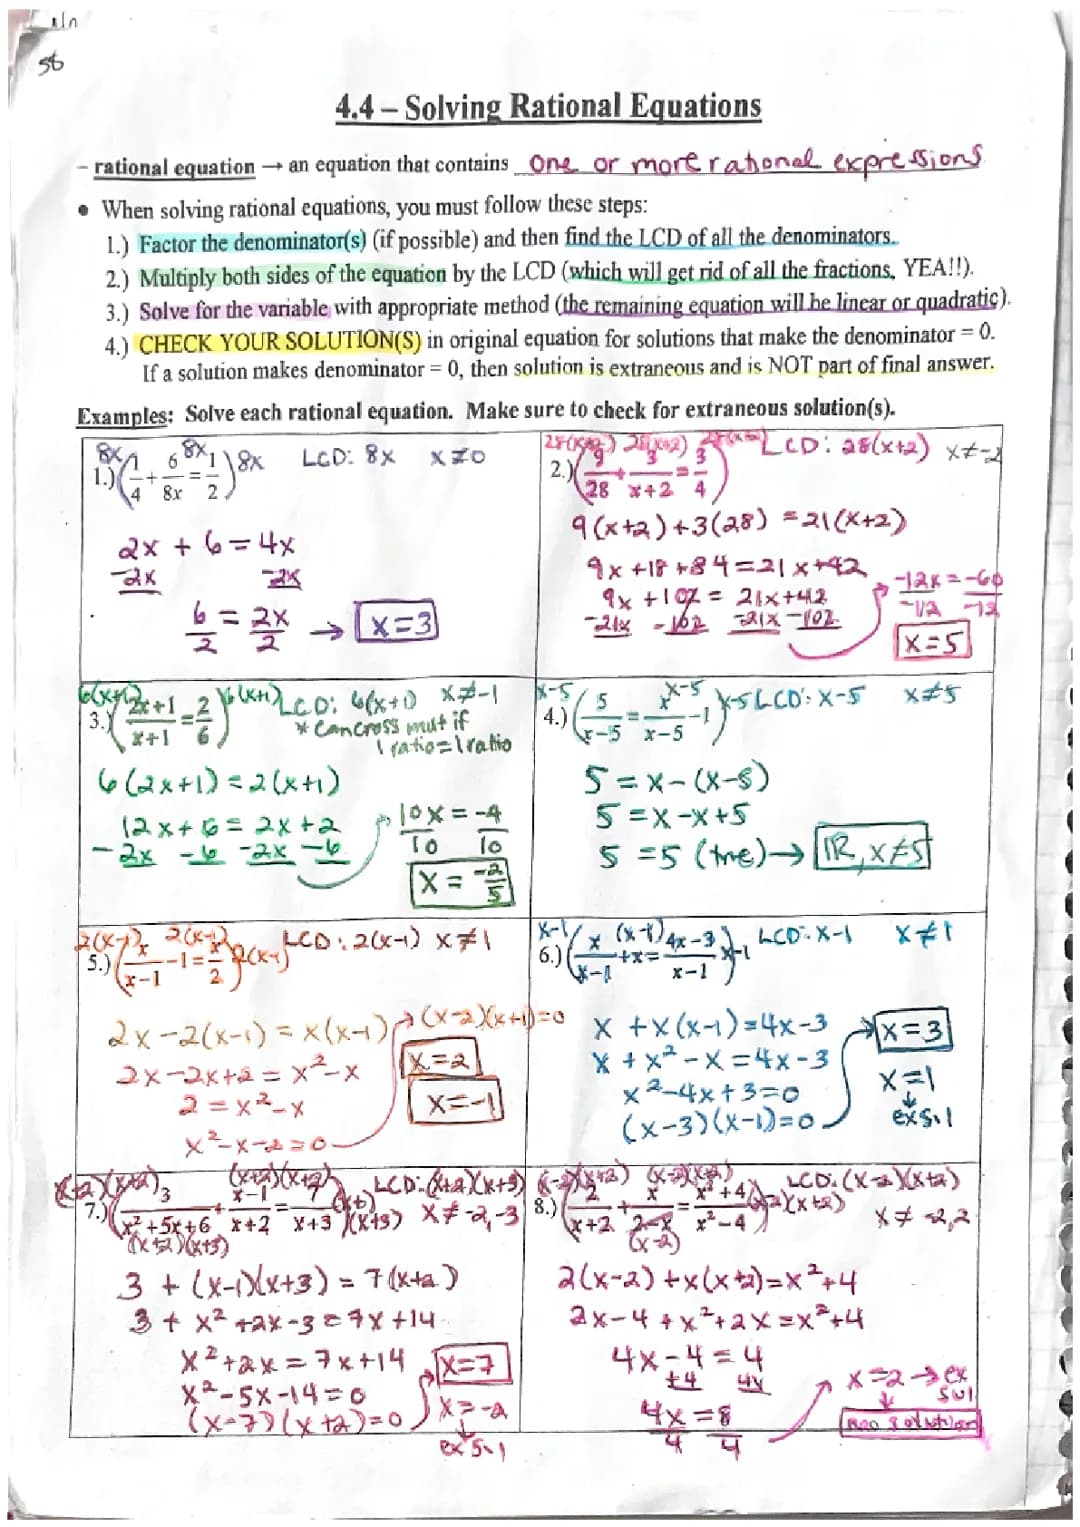 58
4.4 – Solving Rational Equations
– rational equation → an equation that contains one or more rational expressions
• When solving rational equations, you must follow these steps:
1.) Factor the denominator(s) (if possible) and then find the LCD of all the denominators.
2.) Multiply both sides of the equation by the LCD (which will get rid of all the fractions, YEA!!).
3.) Solve for the variable with appropriate method (the remaining equation will be linear or quadratic).
4.) CHECK YOUR SOLUTION(S) in original equation for solutions that make the denominator = 0.
If a solution makes denominator = 0, then solution is extraneous and is NOT part of final answer.
Examples: Solve each rational equation. Make sure to check for extraneous solution(s).
8x 8x
1.) (1/4 + 6/8x = 1/2) 8x LCD: 8x x≠0
2x + 6 = 4x
-2x -2x
6/2 = 2x/2 → x=3
28(x+2) 28(x+2) 28(x+2)
2.) (9/28 + 3/x+2 = 3/4) LCD: 28(x+2) x≠-2
9(x+2)+3(28) = 21(x+2)
9x+18+84=21x+42
9x+102 = 21x+42
-21x -102 -21x -102
-12x = -60
-12 -12
x=5
6(x+1)
3.) (2x+1/x+1 = 2/6) 6(x+1) LCD: 6(x+1) x≠-1
* Can cross mult if
1 ratio=1 ratio
6(2x+1) = 2(x+1)
12x+6 = 2x+2
-2x -6 -2x -6
10x = -4
10 10
x = -2/5
x-5 x-5
4.) (5/x-5 = x/x-5 -1) x-5 LCD: x-5 x≠5
5 = x-(x-5)
5 = x-x+5
5 = 5 (true) → ℝ, x≠5
2(x-1) 2(x-1)
5.) (x/x-1 -1 = x/2) 2(x-1) LCD: 2(x-1) x≠1
2x-2(x-1) = x(x-1)
2x-2x+2 = x²-x
2 = x²-x
x²-x-2=0
(x-2)(x+1)=0
x=2
x=-1
x-1 (x-1)
6.) (x/x-1 +x= 4x-3/x-1) x-1 LCD: x-1 x≠1
x +x(x-1)=4x-3
x + x²-x=4x-3
x²-4x+3=0
(x-3)(x-1)=0
x=3
x=1
↓
ex sol
(x+2)(x+2) (x+2)(x+2)
7.) (3/x²+5x+6 + x-1/x+2 = 7/x+3) (x+3) LCD: (x+2)(x+3) x≠-2,-3
(x+2)(x+3)
3 + (x-1)(x+3) = 7(x+2)
3 + x²+2x-3=7x+14
x²+2x=7x+14
x²-5x-14=0
(x-7)(x+2)=0
x=7
x=-2
↓
ex sol
(x-2)(x+2) (x-2)(x+2)
8.) (2/x+2 + x/2-x = x²+4/x²-4) (x-2)(x+2) LCD: (x-2)(x+2) x≠-2,2
(x-2)
2(x-2)+x(x+2)=x²+4
2x-4+x²+2x=x²+4
4x-4=4
+4
4x=8
4 4
x=2→ex
sol
↓
no solution